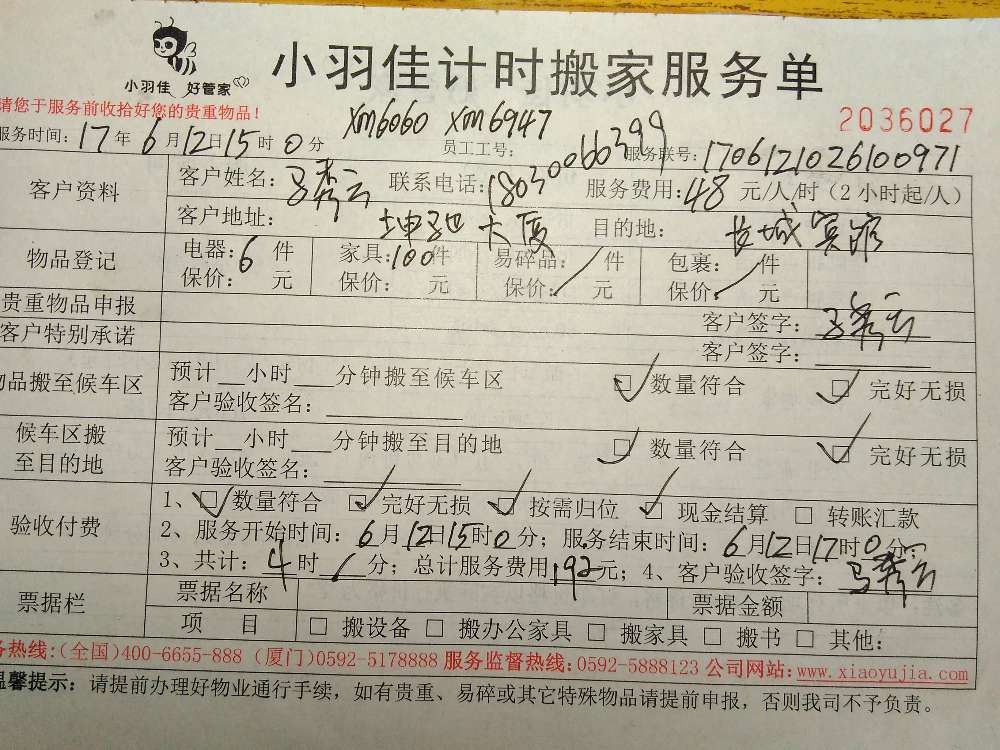 小羽佳 好管家
小羽佳计时搬家服务单
请您于服务前收拾好您的贵重物品！
2036027
服务时间：17年6月12日15时0分 员工工号：XM6060 XM6947 服务联号：1706121026100971
客户资料
客户姓名：马秀云 联系电话：18030066399 服务费用：48元/人/时（2小时起/人）
客户地址： 坤弛大厦 目的地： 长城宾馆
物品登记
电器：6件 家具：100件 易碎品：／件 包裹：／件
保价： 元 保价： 元 保价： 元 保价： 元
贵重物品申报 客户签字：马秀云
客户特别承诺 客户签字：
物品搬至候车区
预计__小时___分钟搬至候车区 ☑ 数量符合 ☑ 完好无损
客户验收签名：
候车区搬
至目的地
预计__小时___分钟搬至目的地 ☑ 数量符合 ☑ 完好无损
客户验收签名：
验收付费
1、☑ 数量符合 ☑ 完好无损 ☑ 按需归位 ☑ 现金结算 □ 转账汇款
2、服务开始时间：6月12日15时0分；服务结束时间：6月12日17时0分；
3、共计：4时／分；总计服务费用192元；4、客户验收签字：马秀云
票据栏
票据名称 票据金额
项 目 □ 搬设备 □ 搬办公家具 □ 搬家具 □ 搬书 □ 其他：
务热线：(全国)400-6655-888 (厦门)0592-5178888 服务监督热线：0592-5888123 公司网站：www.xiaoyujia.com
温馨提示：请提前办理好物业通行手续，如有贵重、易碎或其它特殊物品请提前申报，否则我司不予负责。